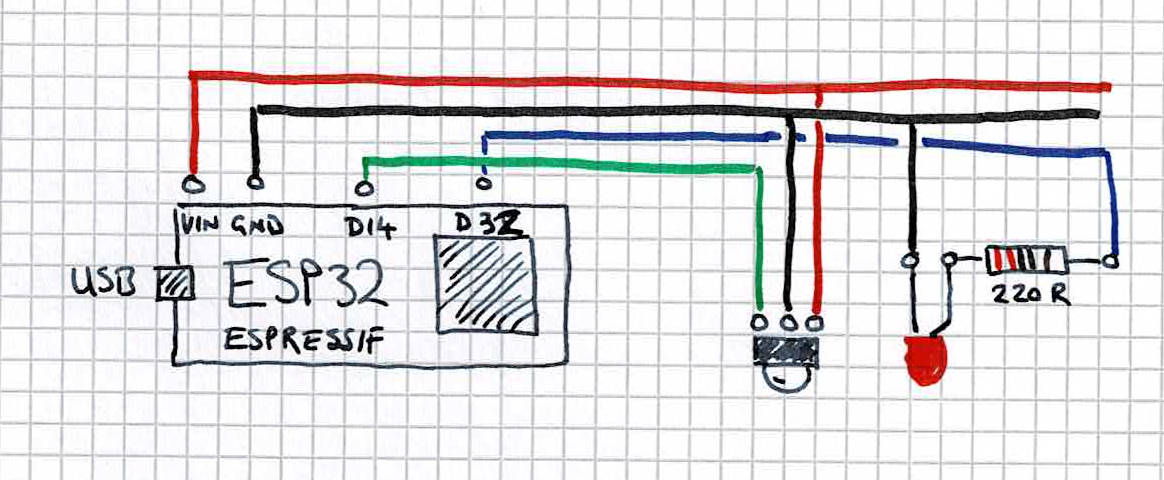 VIN GND D14 D32
USB
ESP32
ESPRESSIF
220R